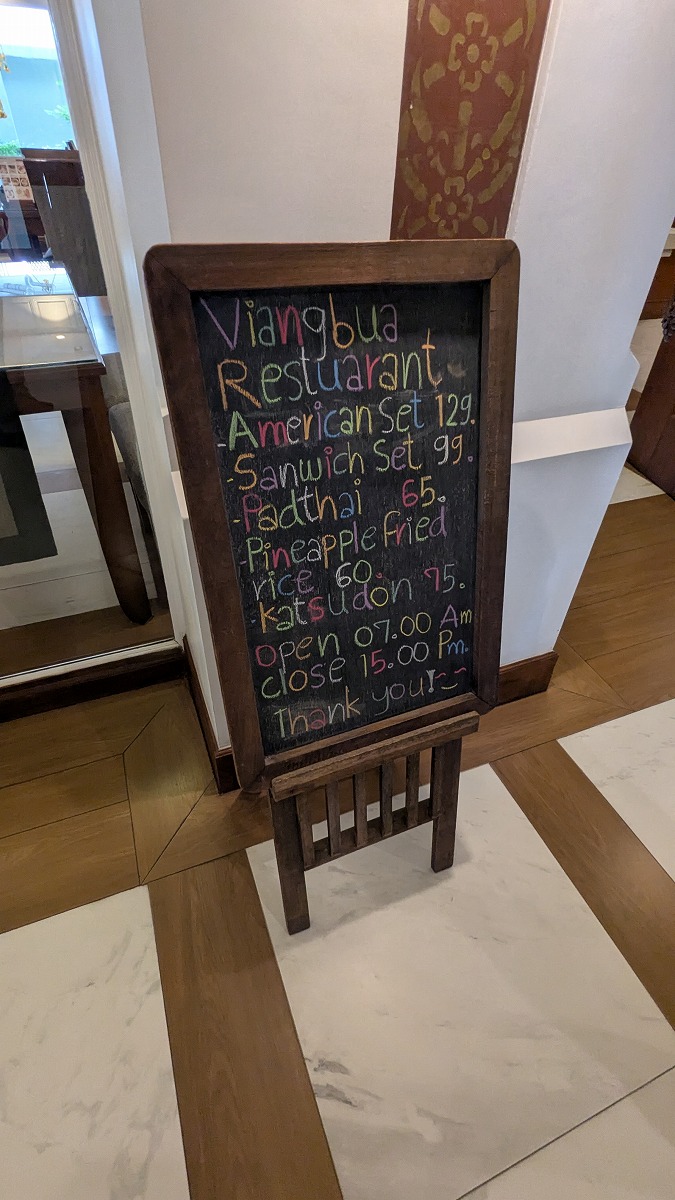 Viangbua
Restuarant
-American Set 129.
-Sanwich Set 99.
-Padthai 65.
-Pineapple fried
rice 60
-katsudon 75.
open 07.00 Am
close 15.00 Pm.
Thank you!